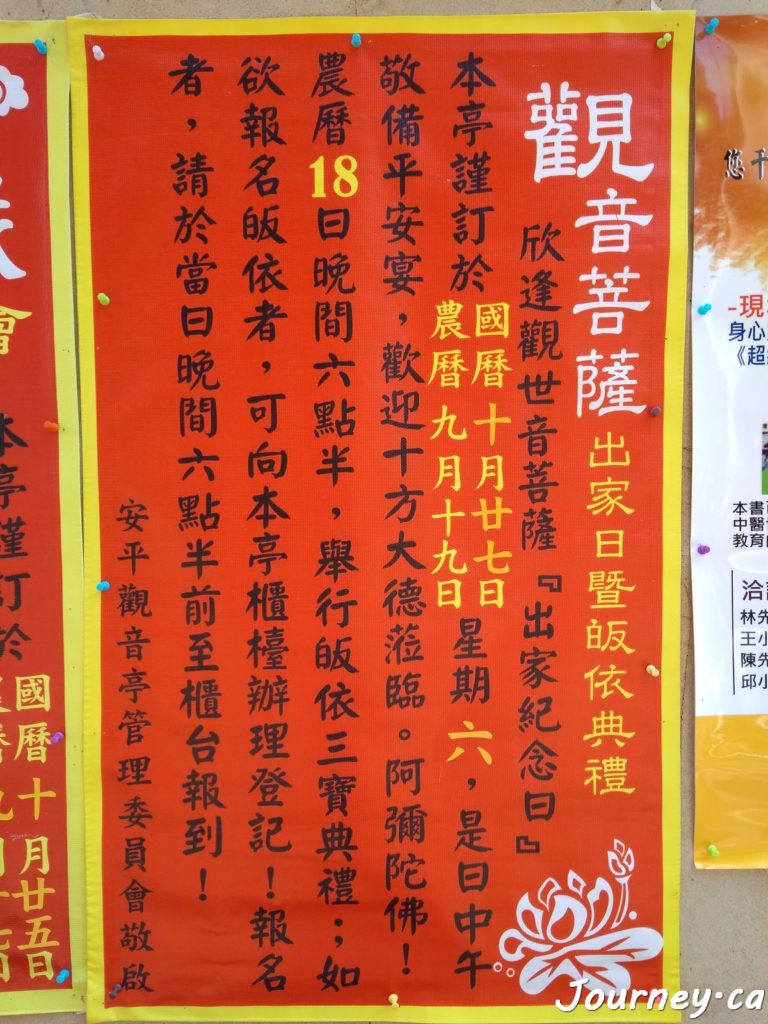 觀音菩薩出家日暨皈依典禮
欣逢觀世音菩薩『出家紀念日』
本亭謹訂於國曆十月廿七日農曆九月十九日星期六，是日中午
敬備平安宴，歡迎十方大德蒞臨。阿彌陀佛！
農曆18日晚間六點半，舉行皈依三寶典禮；如
欲報名皈依者，可向本亭櫃檯辦理登記！報名
者，請於當日晚間六點半前至櫃台報到！
安平觀音亭管理委員會敬啟
會
本亭謹訂於
國曆十月廿五日
您千
-現
身心
《超
本書
中醫
教育
洽
林先
王小
陳先
邱小
Journey.ca